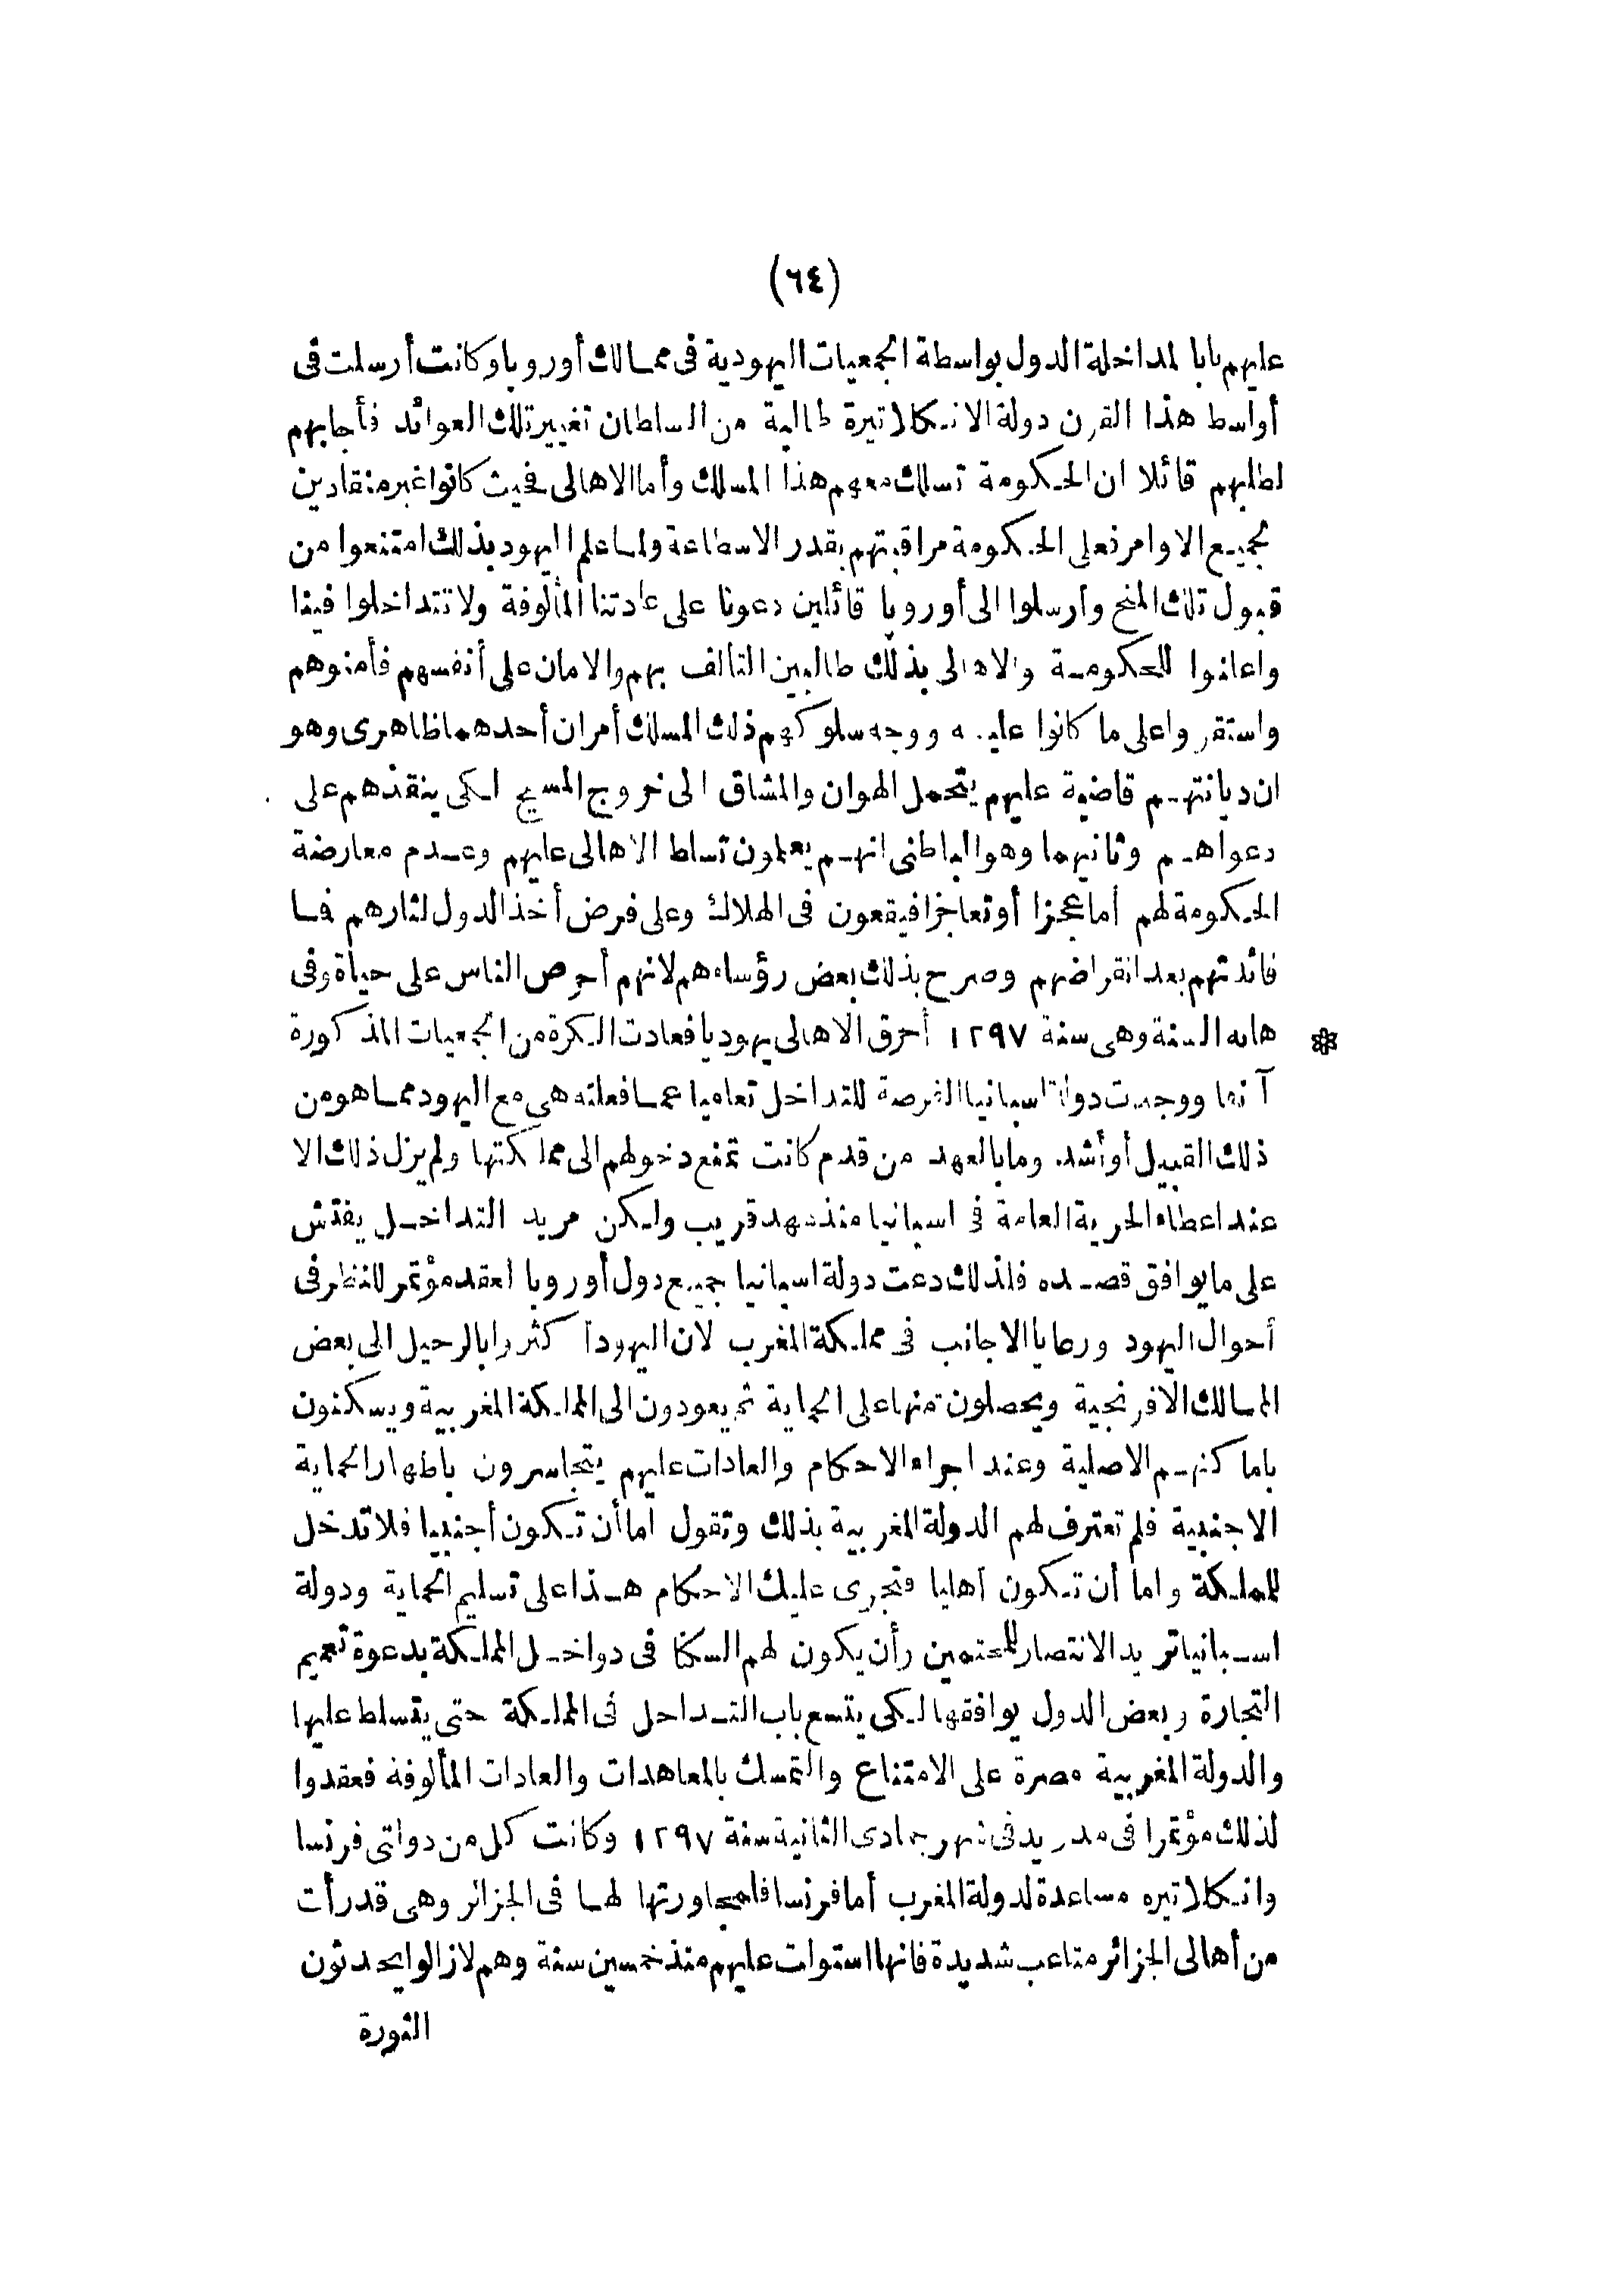 (٦٤)
عليهم بابا لمداخلة الدول بواسطة الجمعيات اليهودية فى ممالك أوروبا وكانت أرسلت فى
أواسط هذا القرن دولة الانكلاتيرة طالبة من السلطان تغيير تلك العوائد فأجابهم
لطلبهم قائلا ان الحكومة تسلك معهم هذا المسلك وأما الاهالى فحيث كانوا غير منقادين
لجميع الاوامر فعلى الحكومة مراقبتهم بقدر الاسطاعة ولما علم اليهود بذلك امتنعوا من
قبول تلك المنح وأرسلوا الى أوروبا قائلين دعونا على عادتنا المألوفة ولا تتداخلوا فينا
واعلنوا للحكومة والاهالى بذلك طالبين التالف بهم والامان على أنفسهم فأمنوهم
واستقروا على ما كانوا عليه ووجه سلوكهم ذلك المسلك أمران أحدهما ظاهرى وهو
ان ديانتهم قاضية عليهم بتحمل الهوان والمشاق الى خروج المسيح لكى ينقذهم على
دعواهم وثانيهما وهو الباطنى انهم يعلمون تسلط الاهالى عليهم وعدم معارضة
الحكومة لهم أما عجزا أو تعاجزا فيقعون فى الهلاك وعلى فرض أخذ الدول لثارهم فما
فائدتهم بعد انقراضهم وصرح بذلك بعض رؤساءهم لانهم أحرص الناس على حياة وفى
* هاته السنة وهى سنة ١٢٩٧ أحرق الاهالى يهوديا فعادت الكرة من الجمعيات المذكورة
آنفا ووجدت دولة اسبانيا الفرصة للتداخل تعاميا عما فعلته هى مع اليهود مما هو من
ذلك القبيل أو أشد. وما بالعهد من قدم كانت تمنع دخولهم الى مملكتها ولم يزل ذلك الا
عند اعطاء الحرية العامة فى اسبانيا منذ عهد قريب ولكن مريد التداخل يفتش
على ما يوافق قصده فلذلك دعت دولة اسبانيا جميع دول أوروبا لعقد مؤتمر للنظر فى
أحوال اليهود ورعايا الاجانب فى مملكة المغرب لان اليهود أكثروا بالرحيل الى بعض
الممالك الافرنجية ويحصلون منها على الحماية ثم يعودون الى المملكة المغربية ويسكنون
باماكنهم الاصلية وعند اجراء الاحكام والعادات عليهم يتجاسرون باظهار الحماية
الاجنبية فلم تعترف لهم الدولة المغربية بذلك وتقول اما أن تكون أجنبيا فلا تدخل
للملكة واما أن تكون أهليا فتجرى عليك الاحكام هذا على تسليم الحماية ودولة
اسبانيا تريد الانتصار للمحتمين وأن يكون لهم السكنا فى دواخل المملكة بدعوة تعميم
التجارة وبعض الدول يوافقها لكى يتسع باب التداخل فى المملكة حتى يتسلط عليها
والدولة المغربية مصرة على الامتناع والتمسك بالمعاهدات والعادات المألوفة فعقدوا
لذلك مؤتمرا فى مدريد فى شهر جمادى الثانية سنة ١٢٩٧ وكانت كل من دولتى فرنسا
وانكلاتيره مساعدة لدولة المغرب أما فرنسا فلمجاورتها لها فى الجزائر وهى قد رأت
من أهالى الجزائر متاعب شديدة فانها استولت عليهم منذ خمسين سنة وهم لازالوا يحدثون
الثورة